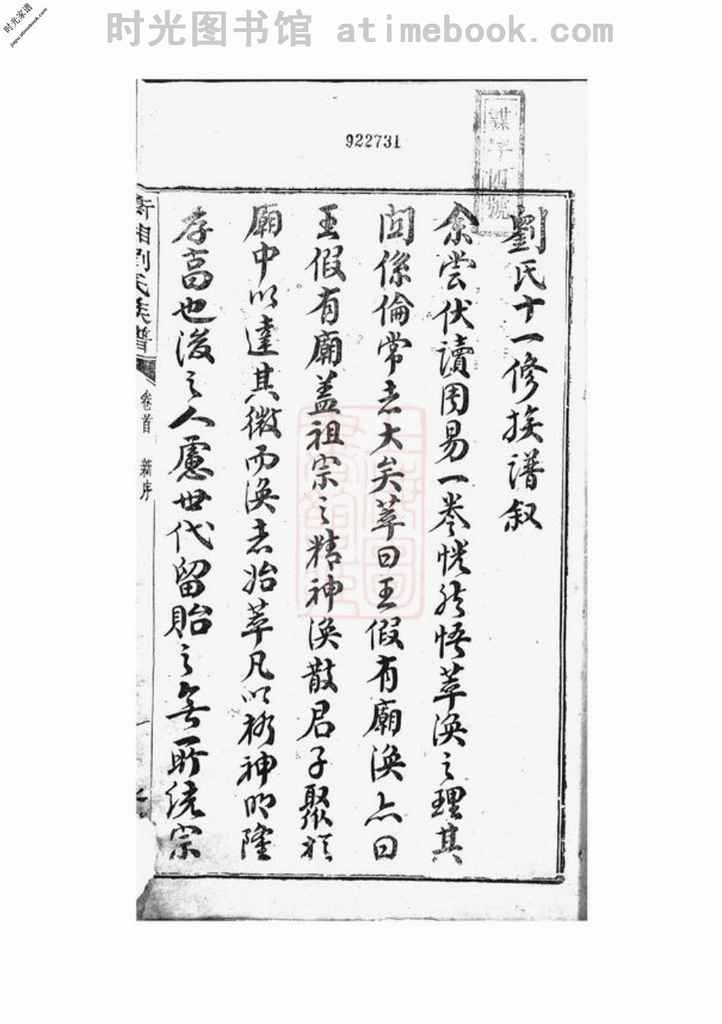 时光图书馆 atimebook.com
时光家谱
jiapu.atimebook.com
922731
譜字四號
劉氏十一修族譜叙
余嘗伏讀周易一卷恍然悟萃渙之理其
関係倫常者大矣萃曰王假有廟渙亦曰
王假有廟盖祖宗之精神渙散君子聚於
廟中以達其微而渙者始萃凡以格神明隆
孝享也後之人慮世代留貽之無所統宗
湘劉氏族譜
卷首 新序